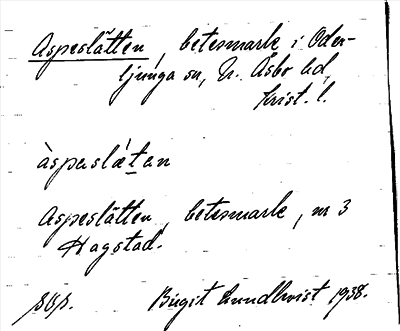 Aspeslätten, betesmark i Oder-
ljunga sn, N. Åsbo hd,
Krist. l.
àspəslǽtən
Aspeslätten, betesmark, nr 3
Hagstad.
Birgit Lundkvist 1938.